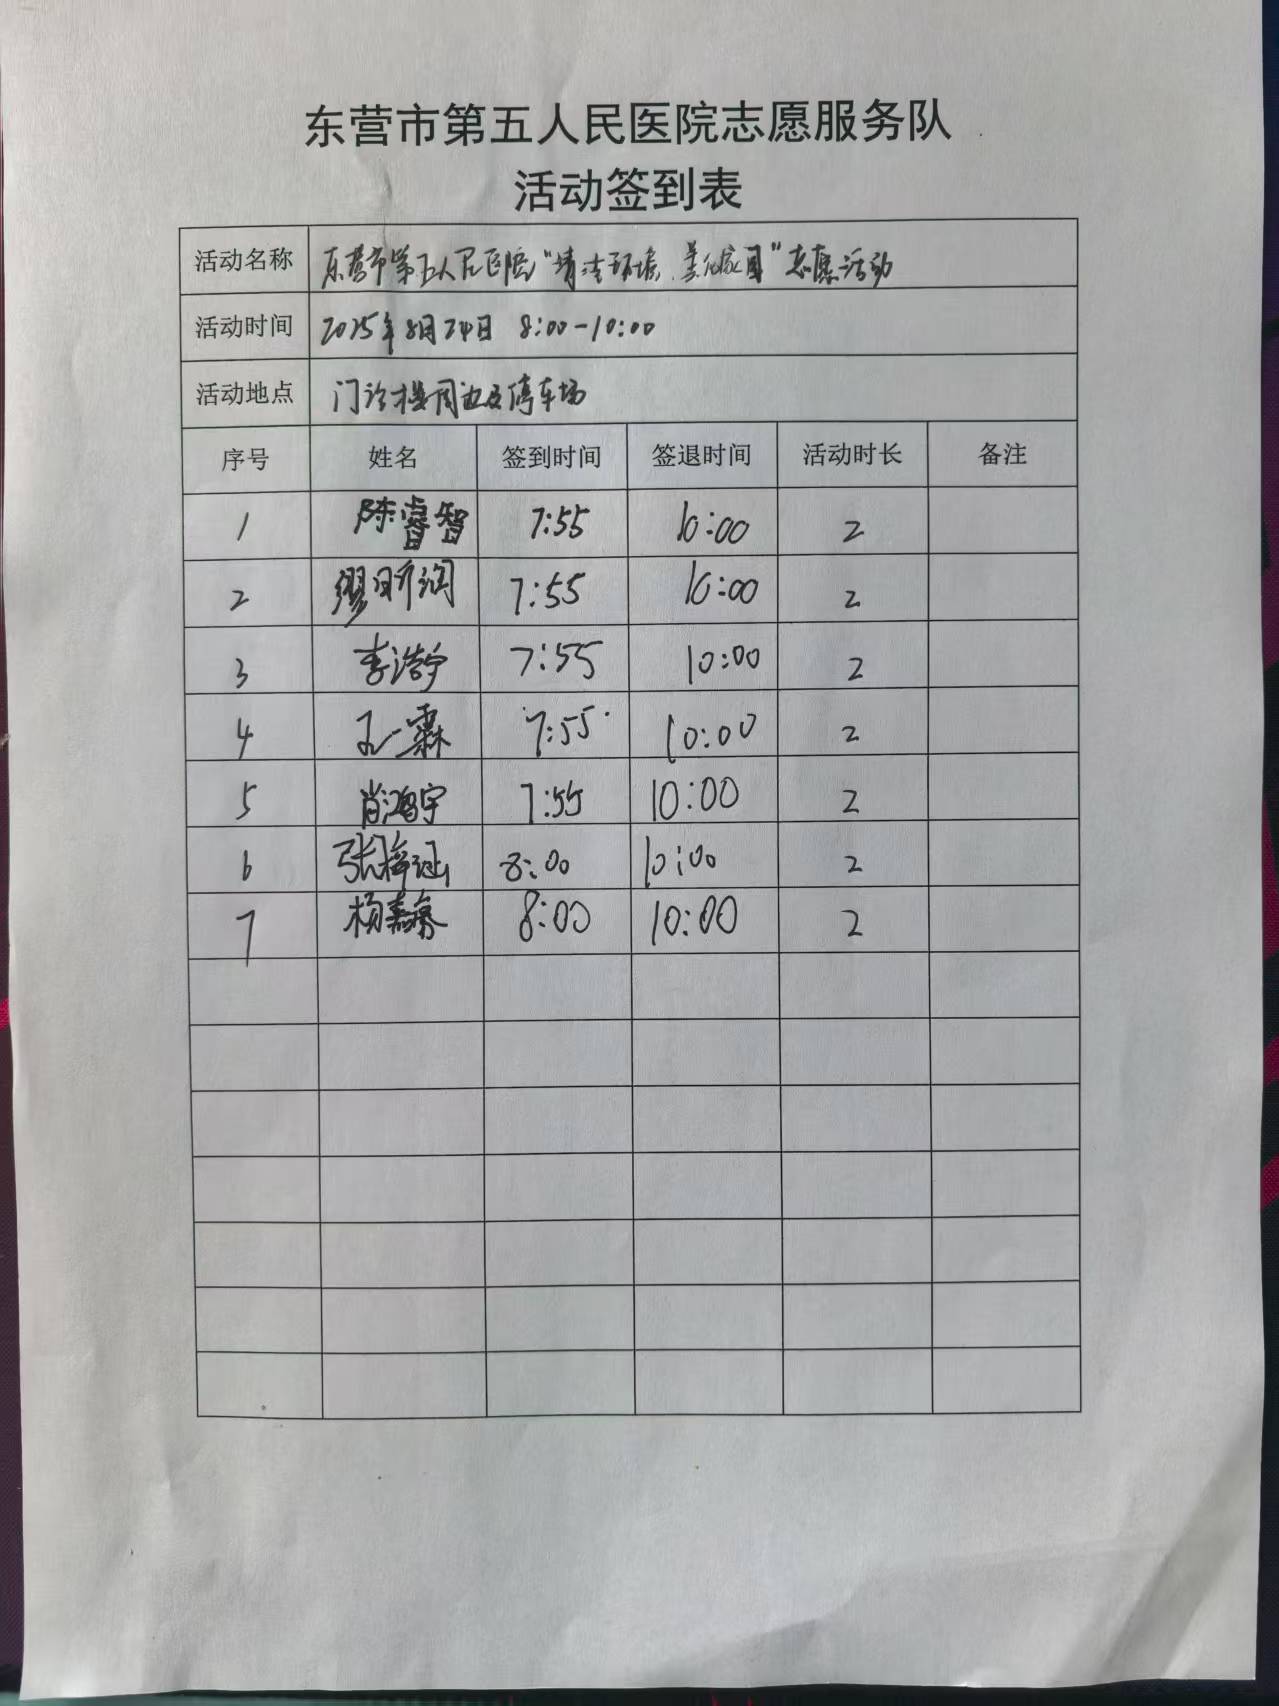 东营市第五人民医院志愿服务队
活动签到表
活动名称 东营市第五人民医院“清洁环境、美化家园”志愿活动
活动时间 2025年8月24日 8:00-10:00
活动地点 门诊楼周边及停车场
序号 姓名 签到时间 签退时间 活动时长 备注
1 陈睿智 7:55 10:00 2
2 7:55 10:00 2
3 李浩宁 7:55 10:00 2
4 7:55 10:00 2
5 肖鸿宇 7:55 10:00 2
6 8:00 10:00 2
7 8:00 10:00 2